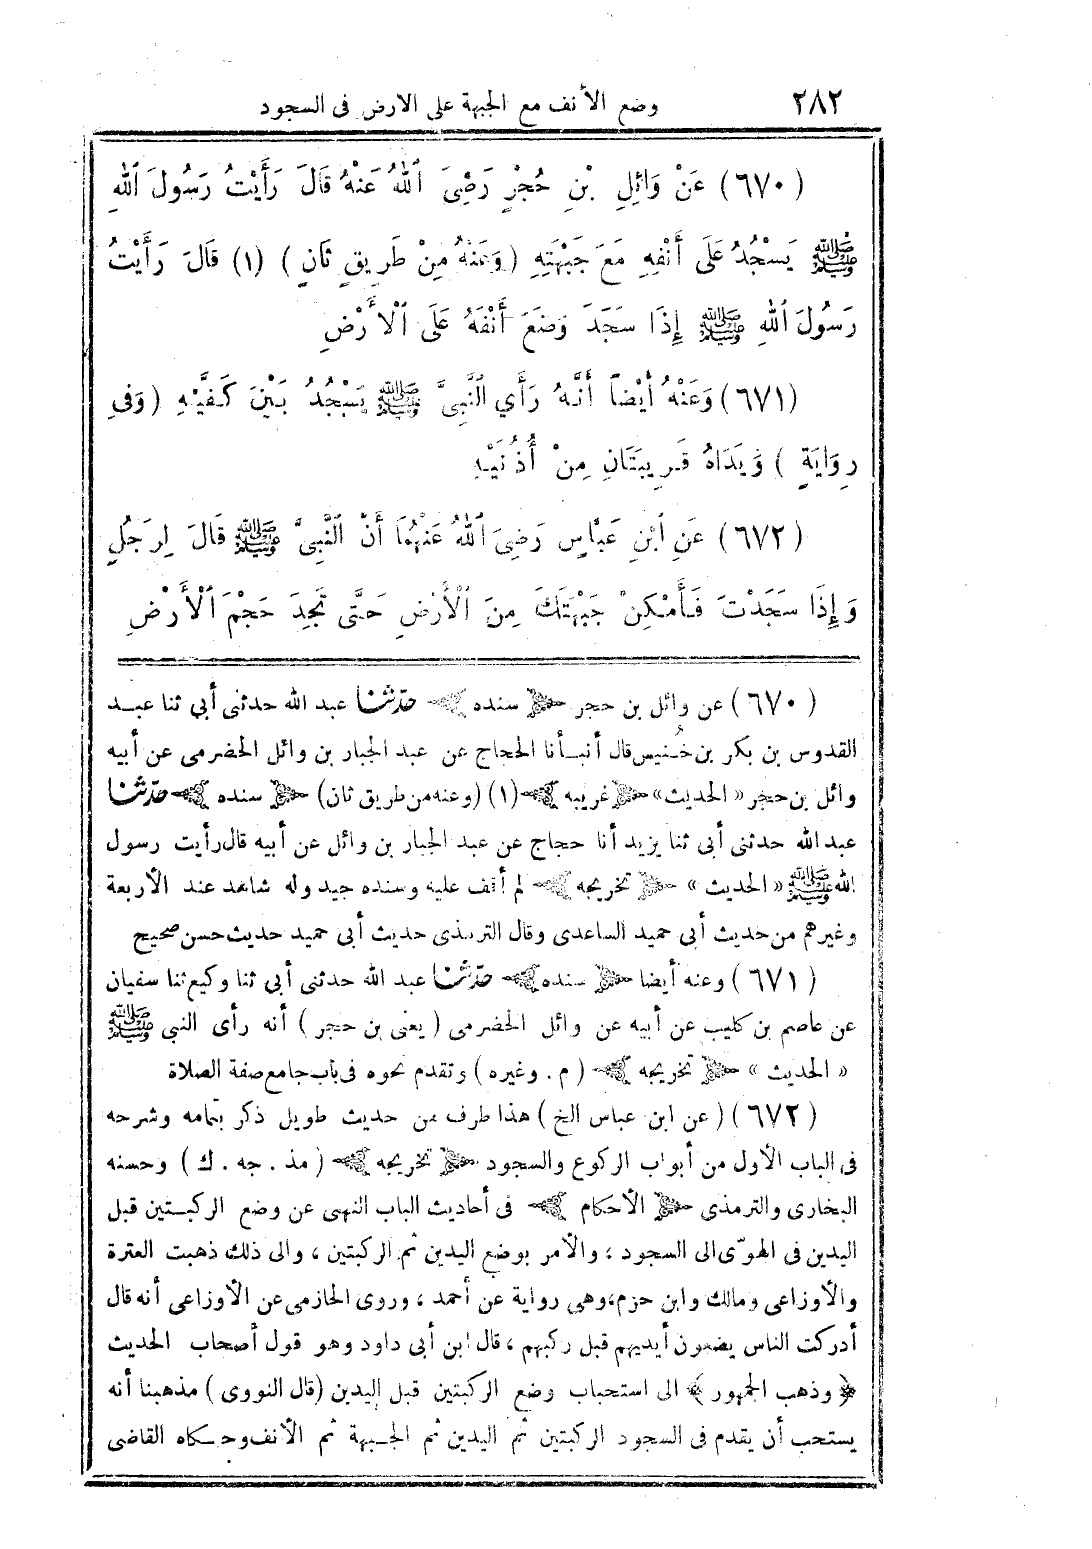 ٢٨٢ وضع الأنف مع الجبهة على الارض فى السجود
(٦٧٠) عَنْ وَائِلِ بْنِ حُجْرٍ رَضِىَ ٱللهُ عَنْهُ قَالَ رَأَيْتُ رَسُولَ ٱللهِ
ﷺ يَسْجُدُ عَلَى أَنْفِهِ مَعَ جَبْهَتِهِ (وَعَنْهُ مِنْ طَرِيقٍ ثَانٍ) (١) قَالَ رَأَيْتُ
رَسُولَ ٱللهِ ﷺ إِذَا سَجَدَ وَضَعَ أَنْفَهُ عَلَى ٱلْأَرْضِ
(٦٧١) وَعَنْهُ أَيْضاً أَنَّهُ رَأَي ٱلنَّبِىَّ ﷺ يَسْجُدُ بَيْنَ كَفَّيْهِ (وَفِى
رِوَايَةٍ) وَيَدَاهُ قَرِيبَتَانِ مِنْ أُذُنَيْهِ
(٦٧٢) عَنِ ابْنِ عَبَّاسٍ رَضِىَ ٱللهُ عَنْهُمَا أَنَّ ٱلنَّبِىَّ ﷺ قَالَ لِرَجُلٍ
وَإِذَا سَجَدْتَ فَأَمْكِنْ جَبْهَتَكَ مِنَ ٱلْأَرْضِ حَتَّى تَجِدَ حَجْمَ ٱلْأَرْضِ
(٦٧٠) عن وائل بن حجر ﴿ سنده ﴾ حدّثنا عبد الله حدثنى أبي ثنا عبد
القدوس بن بكر بن خُنيس قال أنبأنا الحجاج عن عبد الجبار بن وائل الحضرمى عن أبيه
وائل بن حجر «الحديث» ﴿غريبه﴾ (١) (وعنه من طريق ثان) ﴿ سنده ﴾ حدّثنا
عبد الله حدثنى أبي ثنا يزيد أنا حجاج عن عبد الجبار بن وائل عن أبيه قال رأيت رسول
الله ﷺ «الحديث» ﴿ تخريجه ﴾ لم أقف عليه وسنده جيد وله شاهد عند الأربعة
وغيرهم من حديث أبى حميد الساعدى وقال الترمذى حديث أبى حميد حديث حسن صحيح
(٦٧١) وعنه أيضا ﴿ سنده ﴾ حدّثنا عبد الله حدثنى أبي ثنا وكيع ثنا سفيان
عن عاصم بن كليب عن أبيه عن وائل الحضرمى (يعنى بن حجر) أنه رأى النبى ﷺ
«الحديث» ﴿ تخريجه ﴾ (م. وغيره) وتقدم نحوه فى باب جامع صفة الصلاة
(٦٧٢) (عن ابن عباس الخ) هذا طرف من حديث طويل ذكر بتمامه وشرحه
فى الباب الأول من أبواب الركوع والسجود ﴿ تخريجه ﴾ (مذ. جه. ك) وحسنه
البخارى والترمذى ﴿ الأحكام ﴾ فى أحاديث الباب النهى عن وضع الركبتين قبل
اليدين فى الهوىّ الى السجود، والأمر بوضع اليدين ثم الركبتين، والى ذلك ذهبت العترة
والأوزاعى ومالك وابن حزم، وهي رواية عن أحمد، وروى الحازمى عن الأوزاعى أنه قال
أدركت الناس يضعون أيديهم قبل ركبهم، قال ابن أبى داود وهو قول أصحاب الحديث
﴿ وذهب الجمهور ﴾ الى استحباب وضع الركبتين قبل اليدين (قال النووى) مذهبنا أنه
يستحب أن يقدم فى السجود الركبتين ثم اليدين ثم الجبهة ثم الأنف وحكاه القاضى